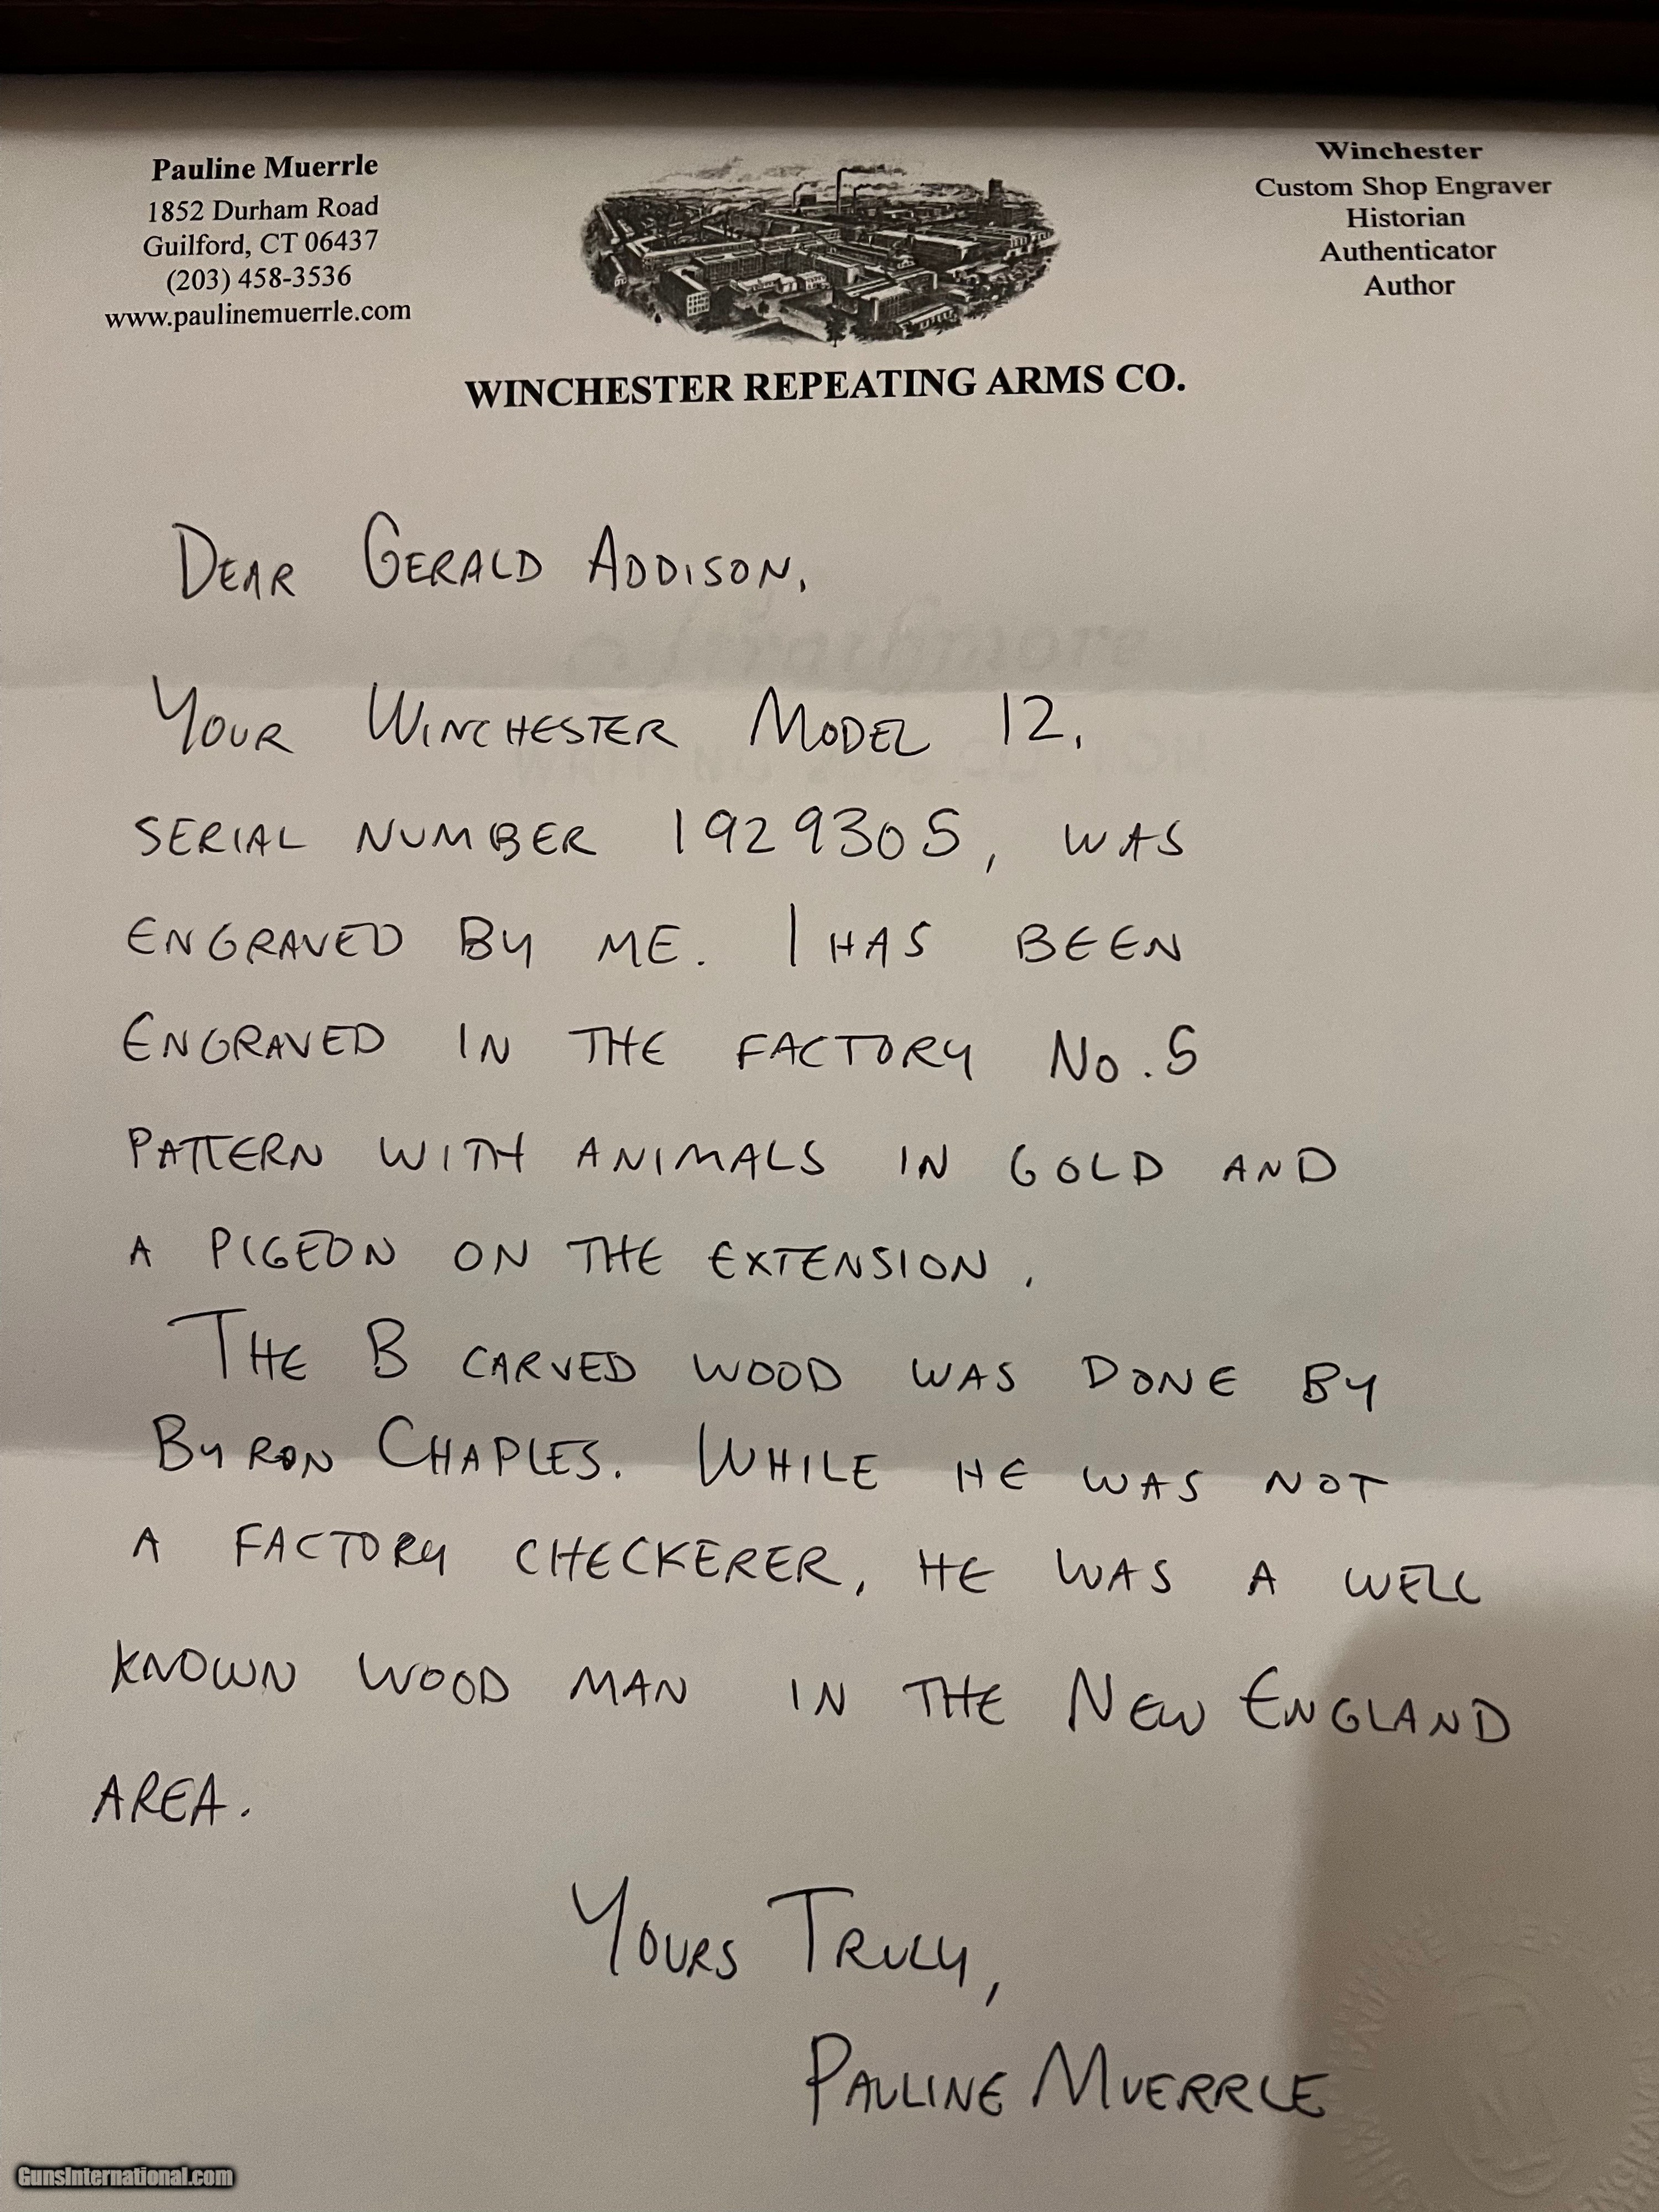 Pauline Muerrle
1852 Durham Road
Guilford, CT 06437
(203) 458-3536
www.paulinemuerrle.com
Winchester
Custom Shop Engraver
Historian
Authenticator
Author
WINCHESTER REPEATING ARMS CO.
DEAR GERALD ADDISON,
YOUR WINCHESTER MODEL 12,
SERIAL NUMBER 1929305, WAS
ENGRAVED BY ME. I HAS BEEN
ENGRAVED IN THE FACTORY No. 5
PATTERN WITH ANIMALS IN GOLD AND
A PIGEON ON THE EXTENSION.
THE B CARVED WOOD WAS DONE BY
BYRON CHAPLES. WHILE HE WAS NOT
A FACTORY CHECKERER, HE WAS A WELL
KNOWN WOOD MAN IN THE NEW ENGLAND
AREA.
YOURS TRULY,
PAULINE MUERRLE
GunsInternational.com